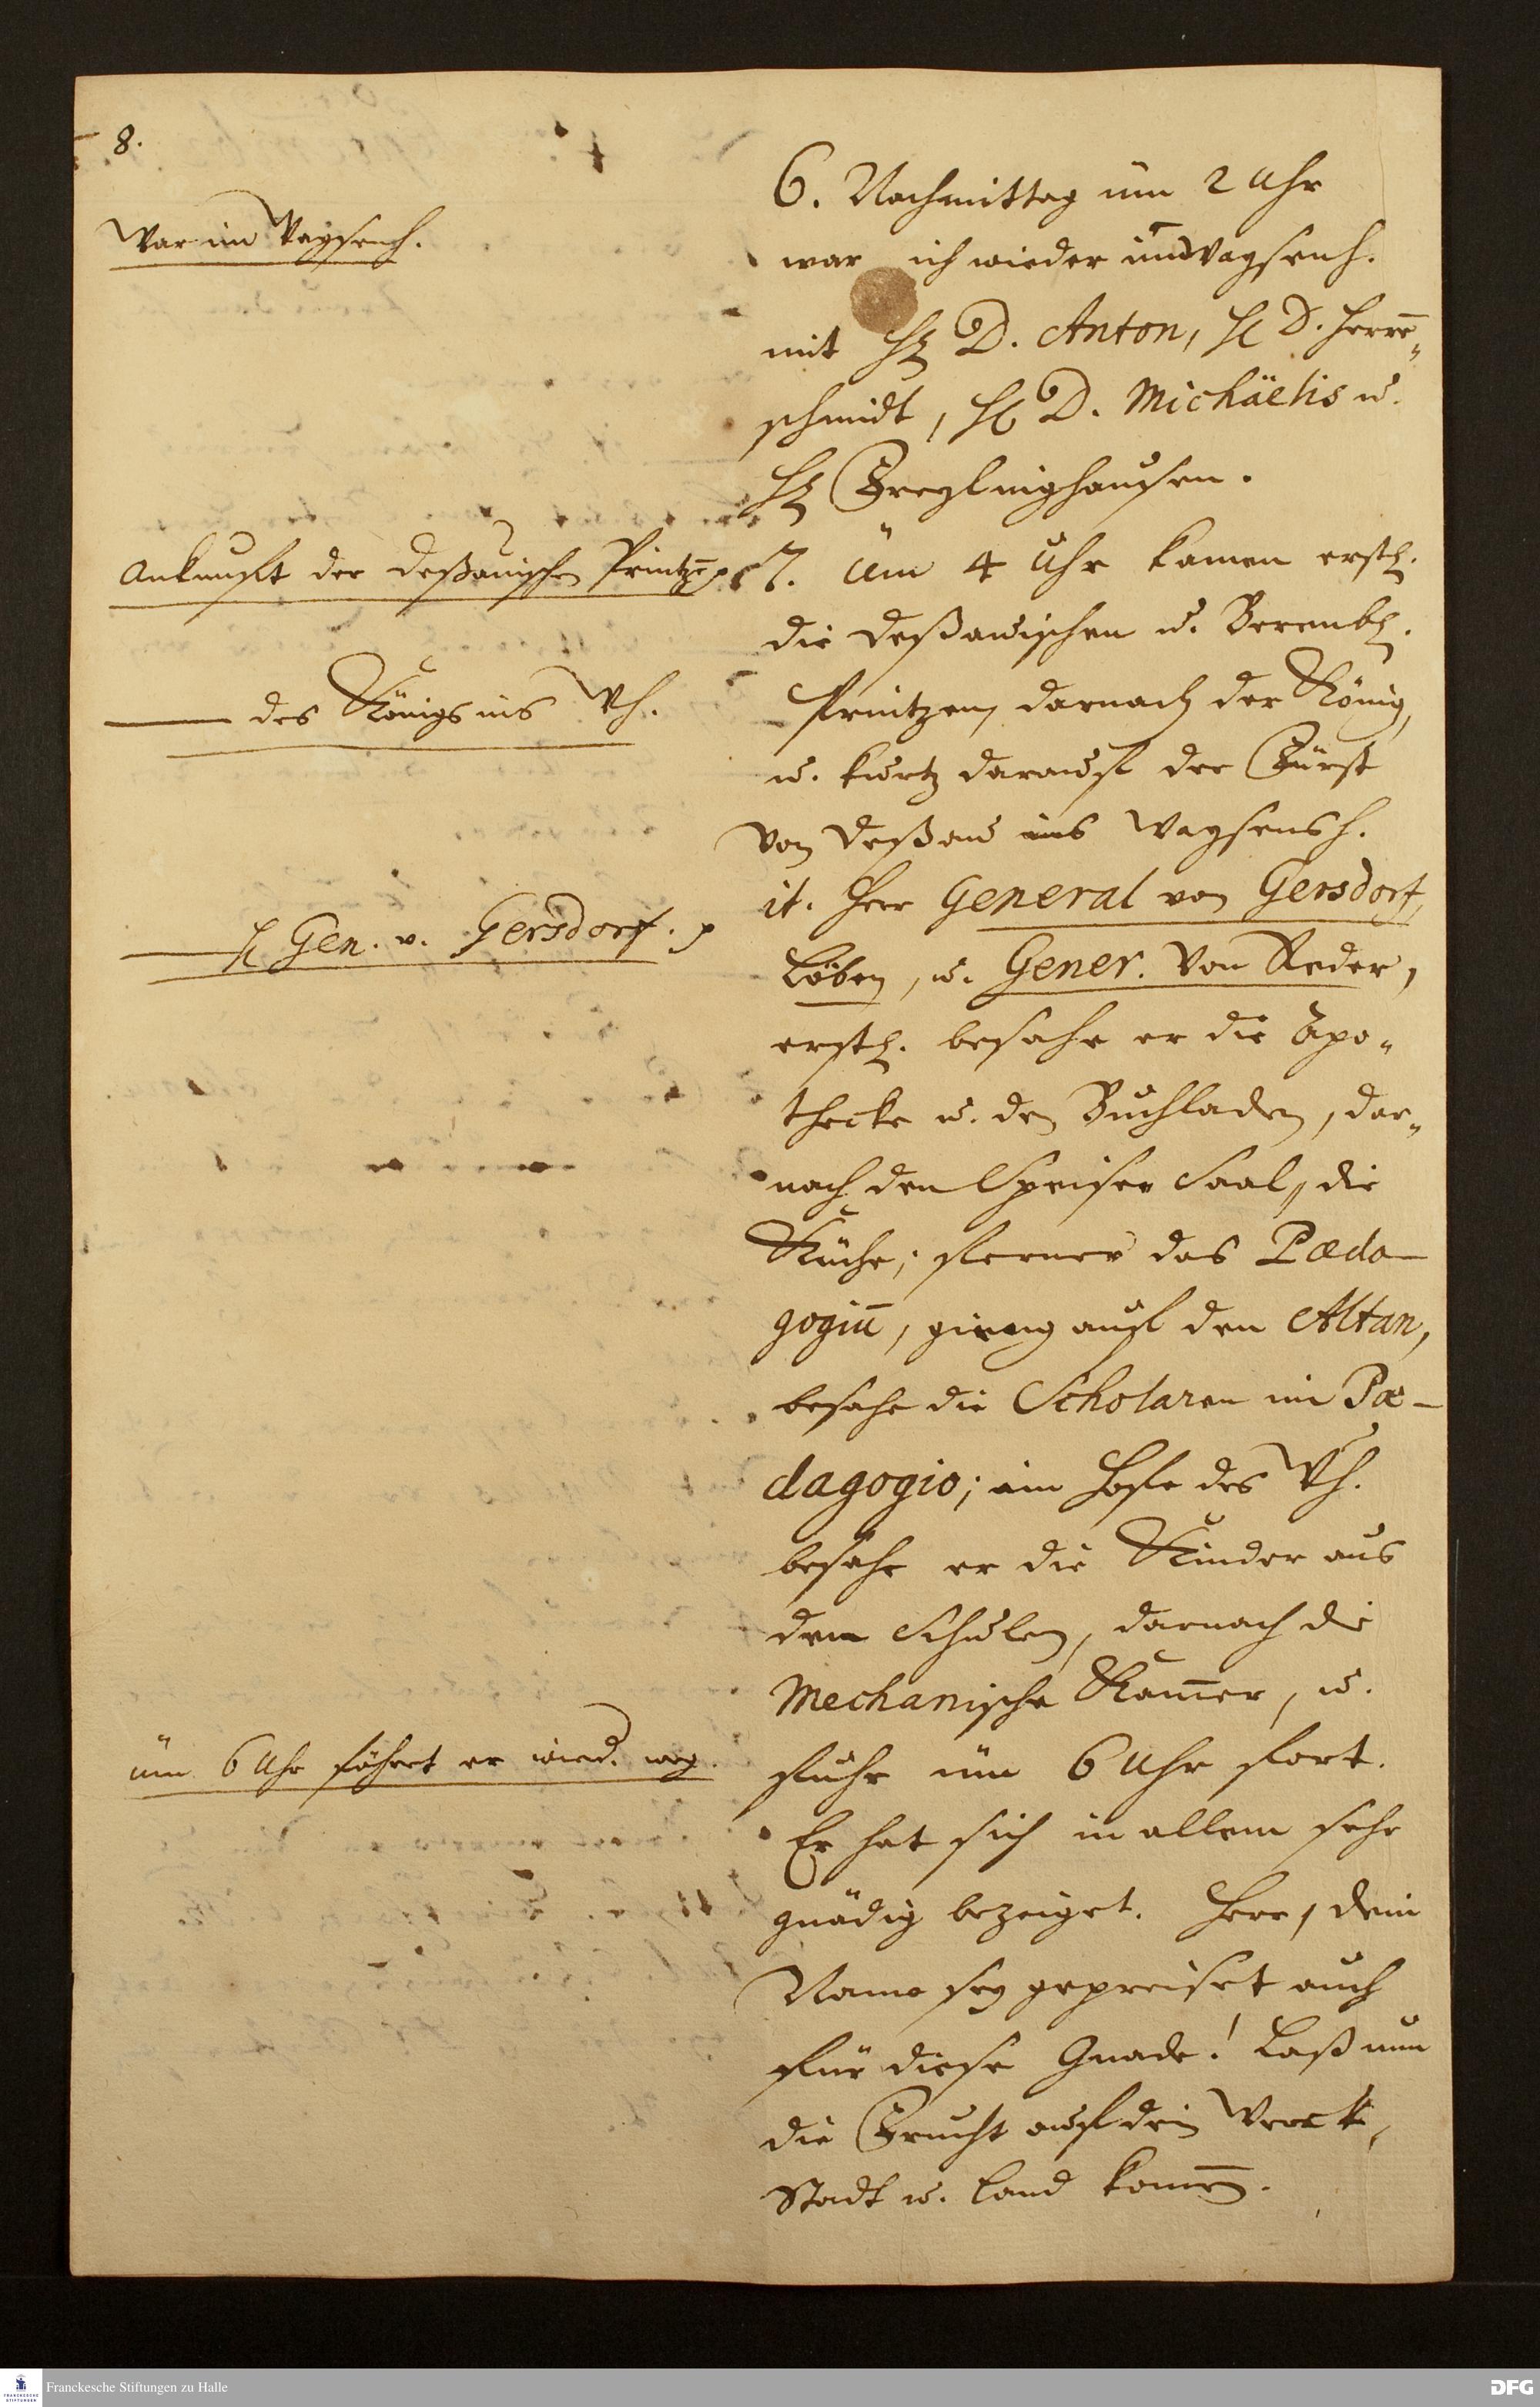 8.
War im Waysenh.
6. Nachmittag üm 2 Uhr
war ich wieder im Waysenh.
mit H. D. Anton, H. D. Herrn„
schmidt, H. D. Michäelis u.
H. Freylinghausen.
Ankunft der Deßauischen Printzen p
7. Üm 4 Uhr kamen erstl.
die Deßauischen u. Berenb.
Printzen, darnach der König,
des Königs ins Wh.
u. kurtz darauf der Fürst
von Deßau ins Waysensh.
it. Herr General von Gersdorf,
H Gen. v. Gersdorf. p
Löben, u. Gener. von Reder,
erstl. besahe er die Apo„
thecke u. den Buchladen, dar„
nach den Speise Saal, die
Küche; ferner das Pæda-
gogiū, gieng auf den Altan,
besahe die Scholaren im Pæ-
dagogio; im Hofe des Wh.
besahe er die Kinder aus
den Schulen, darnach die
Mechanische Kam̄er, u.
üm 6 Uhr fähret er wied. weg.
fuhr üm 6 Uhr fort.
Er hat sich in allem sehr
gnädig bezeiget. Herr, dein
Name sey gepreiset auch
für diese Gnade! Laß nun
die Frucht auf dein Werck,
Stadt u. Land kom̄en.
Franckesche Stiftungen zu Halle
FRANCKESCHE STIFTUNGEN
DFG